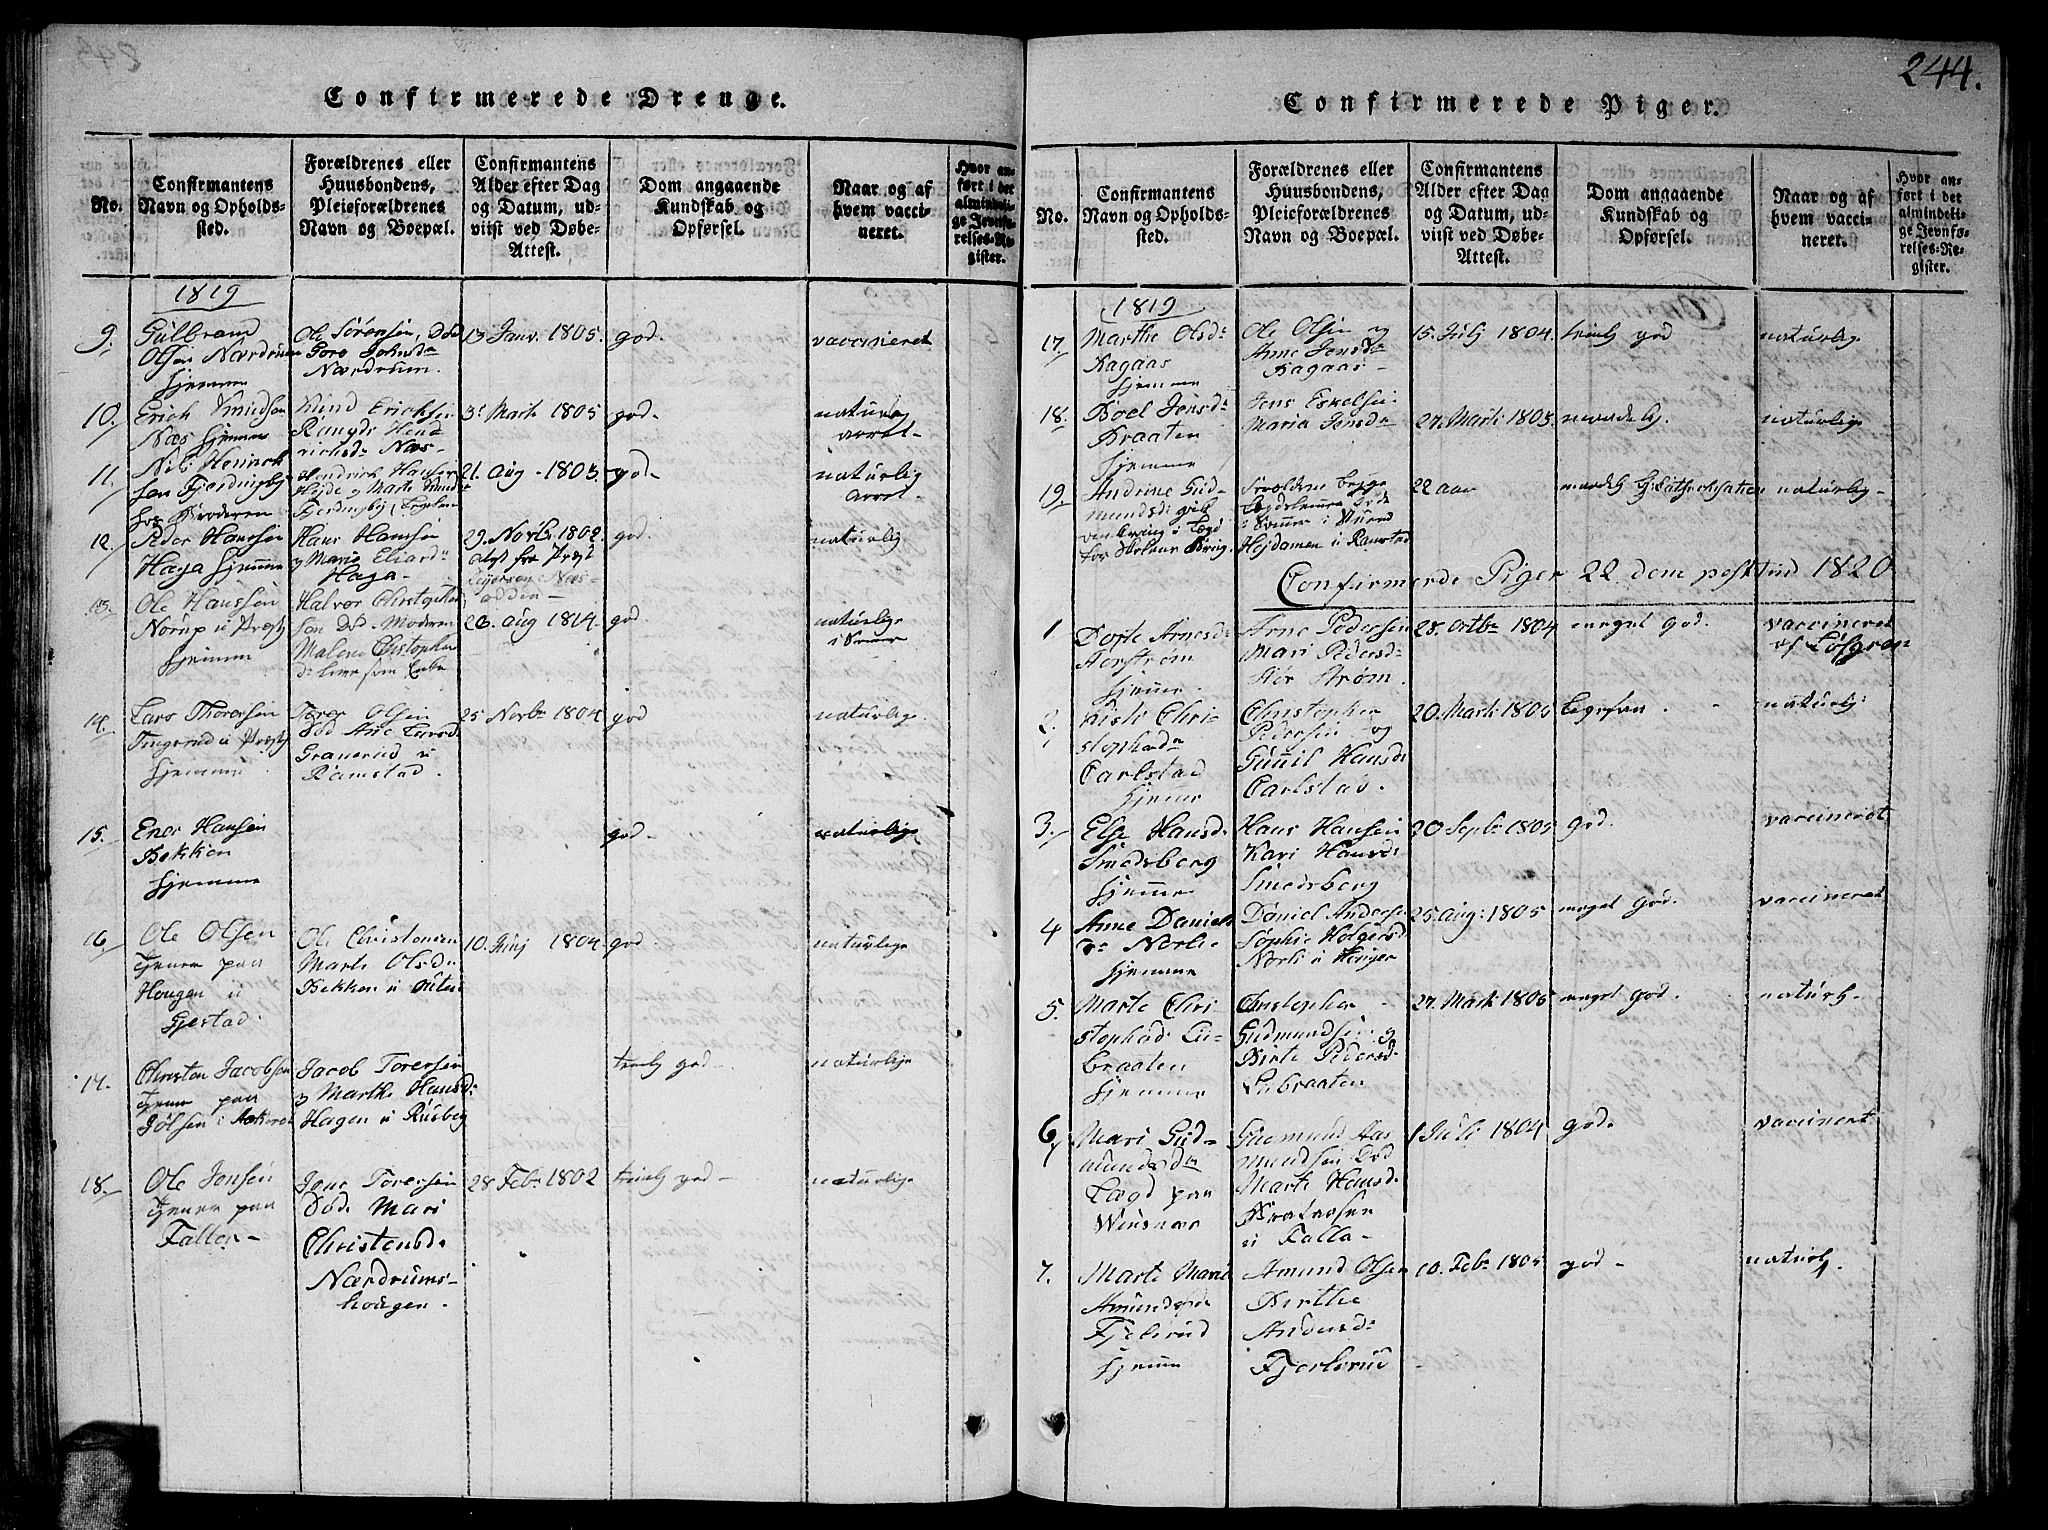 244.
Confirmerede Drenge.
No.
Confirmantens
Navn og Opholds-
sted.
Forældrenes eller
Huusbondens,
Pleieforældrenes
Navn og Boepæl.
Confirmantens
Alder efter Dag
og Datum, ud-
viist ved Døbe-
Attest.
Dom angaaende
Kundskab og
Opførsel.
Naar og af
hvem vacci-
neret.
Hvor an-
ført i det
almindeli-
ge Jevnfø-
relses-Re-
gister.
1819
9.
Gulbrand
Olsen Nærdrum
hjemme
Ole Sørensen, Død
Goro Johnsdr
Nærdrum.
13 Janv. 1805.
god.
vaccineret
10.
Erich Knudsen
Næs hjemme
Knud Erichsen
Rangdi Hend
richsdr Næs-
31 Marti 1805
god.
naturlig
arret-
11.
Nils Henrich
sen Fjerdingby
hos Broderen
Hendrich Hansen
Hejde og Marte Knuds
Fjerdingby,
21. Aug - 1803
god-
naturlig
arret-
12.
Peder Hanssen
Haga hjemme
Hans Hansen
og Marie Eliasdr
Haga-
29. Novbr. 1802.
Attest fra Præst
Næs-
god.
naturlig
13.
Ole Hanssen
Norup u Præstg
hjemme
Halvor Christophers
sen Død. Moderen
Malene Christopher
dr lever som Enke
26. Aug 1814.
god.
naturlige
14.
Lars Thorersen
Tingerud u Præstg
hjemme
Torer Olsen
Død Ane Larsd
Granerud u
Ramstad.
25 Novbr 1804.
god
naturlige.
15.
Ener Hansen
Bekken
hjemme
god.
naturlige
16.
Ole Olsen
Tjener paa
Hougen u
Gjestad.
Ole Christensen
Marte Olsdr
Bekken u
10. Junj 1804.
god.
naturlige
17.
Christen Jacobsen
Tjener paa
Jølsen i
Jacob Torersen
og Marthe Hansdr
Hagen u Rusberg
temlj god-
naturlige
18.
Ole Jonsen
Tjener paa
Faller-
Jone Torersen
Død. Mari
Christensdr
Nærdrums-
hougen.
28 Febr 1802
temlj god-
naturlige
Confirmerede Piger.
No.
Confirmantens
Navn og Opholds-
sted.
Forældrenes eller
Huusbondens,
Pleieforældrenes
Navn og Boepæl.
Confirmantens
Alder efter Dag
og Datum, ud-
viist ved Døbe-
Attest.
Dom angaaende
Kundskab og
Opførsel.
Naar og af
hvem vacci-
neret.
Hvor an-
ført i det
almindeli-
ge Jevnfø-
relses-Re-
gister.
1819
17
Marthe Olsdr
Kagaas
hjemme
Ole Olsen og
Anne Jensdr
Kagaas-
15. Julj 1804.
temlj god
naturlig
18.
Boel Jensdr
Braaten
hjemme
Jens Eskelsen
Maria Jensdr
27. Marti 1803
maadelig.
naturlig
19.
Andrine Gud
mundsdr
i Lægd
Forældrene begge
Hejdamen u Ramstad
22 aar
naturlig-
Confirmerde Piger 22 dem post trid 1820
1
Dorte Arnesdr
Norstrøm
hjemme.
Arne Pedersen
Mari Pedersdr
Nor Strøm.
28. Octbr 1804
meget god.
vaccineret
af Løfgren
2.
Kisti Chri-
stophedr
Carlstad
hjemme
Christopher
Pedersen og
Gunnil Hansdr
Carlstad.
20. Marti 1805
naturlig
3.
Else Hansdr
Smedsberg
hjemme
Hans Hansen
Kari Hansdr
Smedsberg
20 Septbr 1805
God.
vaccineret
4
Anne Daniels
dr Norli-
hjemme
Daniel Andersen
Sophie Holgersd.
Norli u Henger
25. Aug: 1805
meget God.
vaccineret
5.
Marte Chri
stophdr Lu-
braaten
hjemme
Christopher
Gudmundsen og
Birte Pedersdr
Lubraaten
27. Marti 1805
meget god.
naturl-
6
Mari Gud-
mundsdr
Lægd paa
Gudmund Aas
mundsen Død
Marte Hansdr
Brataasen
u Falla-
1 Juli 1804
god.
vaccineret
7.
Marte Marie
Amundsdr
Fjelsrud
hjemme
Amund Olsen
Birthe
Andersdr
Fjerlsrud
10. Febr 1805
god-
naturlj.